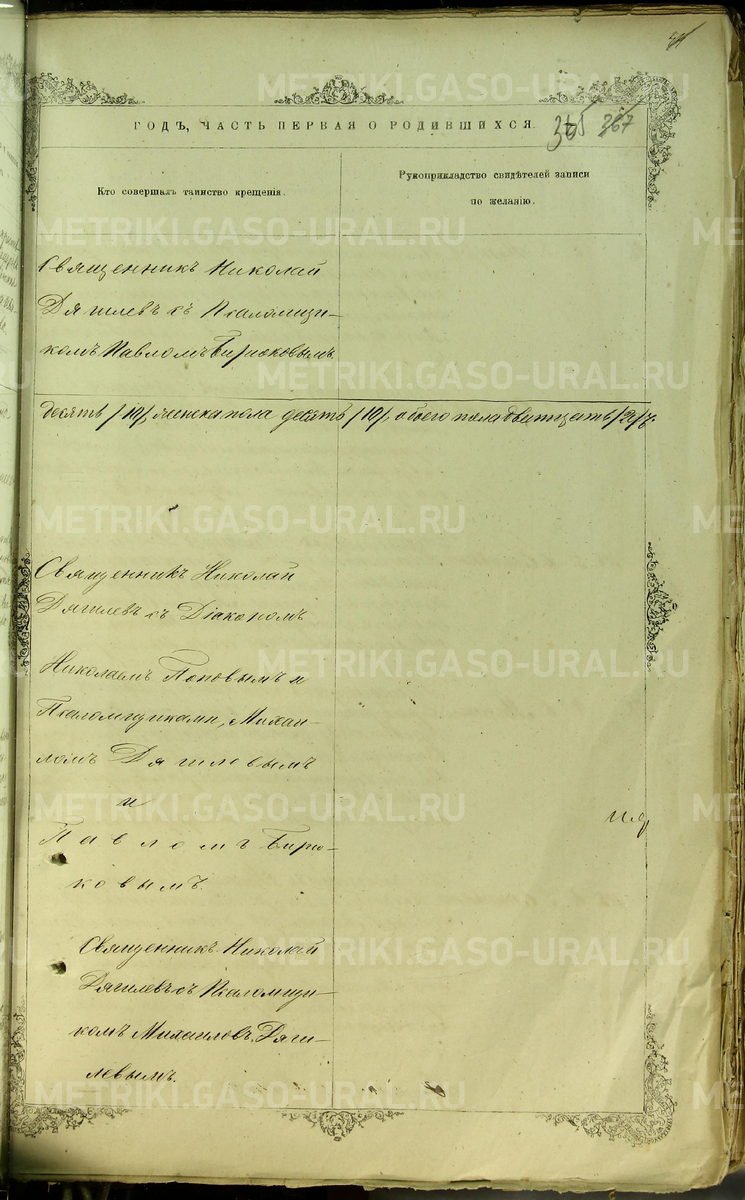 ГОДЪ, ЧАСТЬ ПЕРВАЯ О РОДИВШИХСЯ.
365 367
Кто совершалъ таинство крещенія.
Рукоприкладство свидѣтелей записи
по желанію.
Священникъ Николай
Дягилевъ съ Псаломщи-
комъ Павломъ Бирюковымъ
десять /10/, женска пола десять /10/, обоего пола двадцать /20/.
Священникъ Николай
Дягилевъ съ Діакономъ
Николаемъ Поповымъ и
Псаломщиками, Михаи-
ломъ Дягилевымъ
и
Павломъ Бирю-
ковымъ.
Священникъ Николай
Дягилевъ съ Псаломщи-
комъ Михаиломъ Дяги-
левымъ.
METRIKI.GASO-URAL.RU